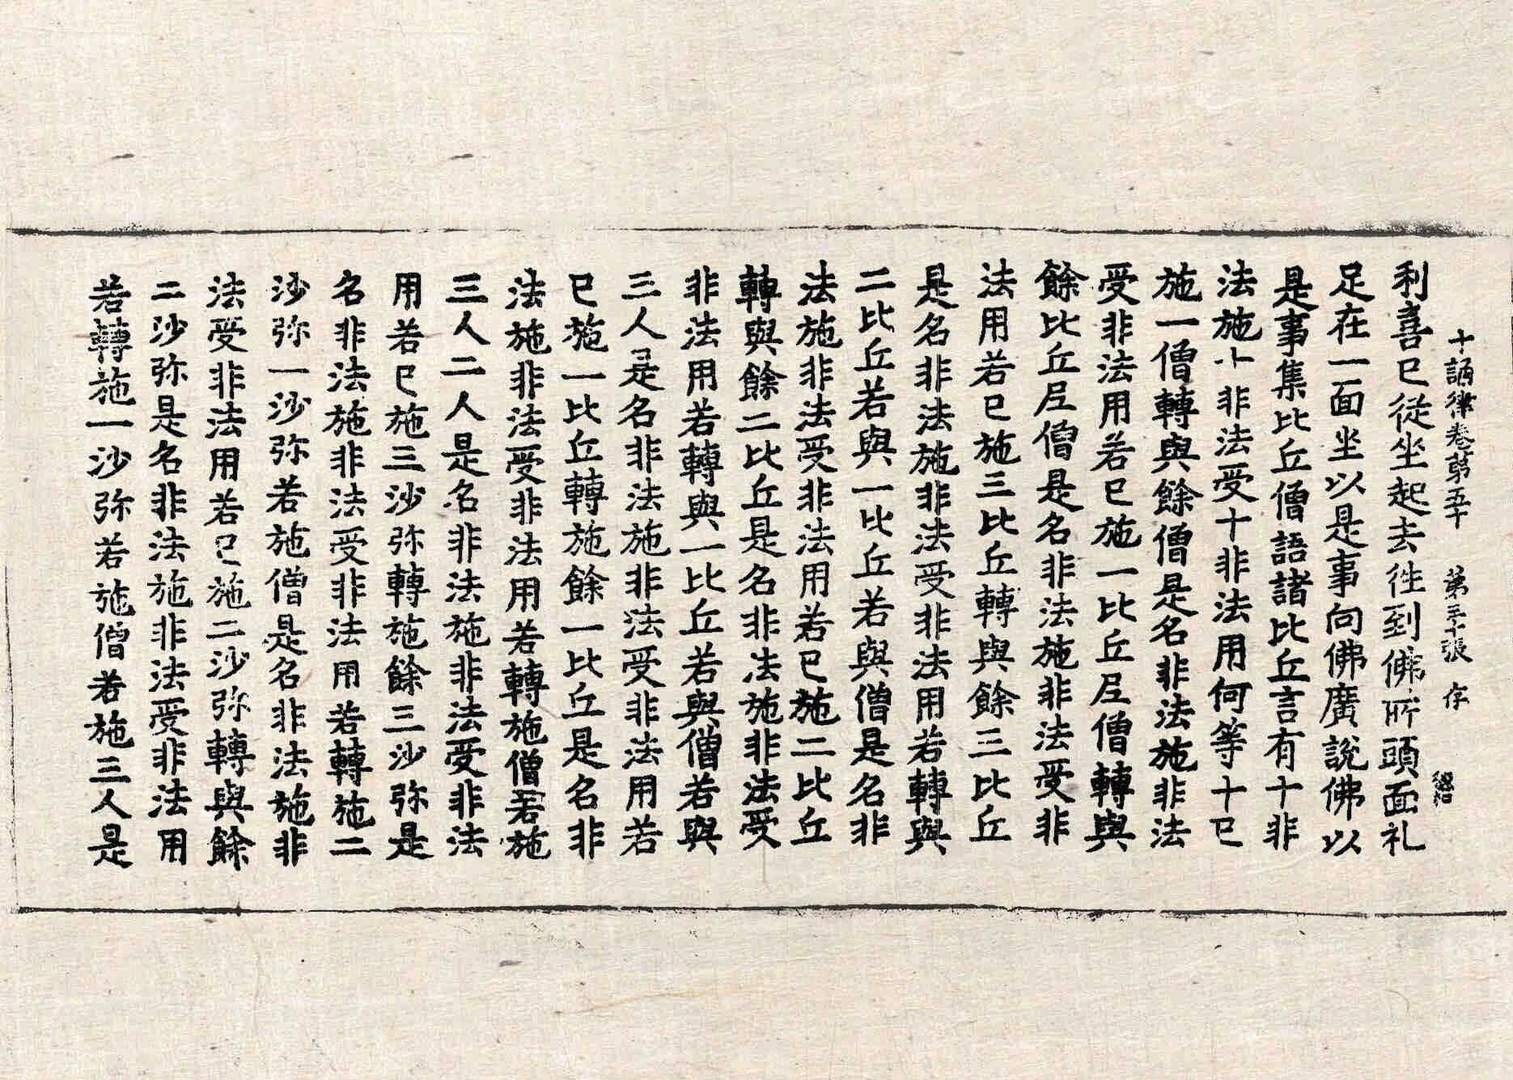 十誦律卷第五十 第三十張 存
利喜已從坐起去往到佛所頭面礼
足在一面坐以是事向佛廣說佛以
是事集比丘僧語諸比丘言有十非
法施十非法受十非法用何等十已
施一僧轉與餘僧是名非法施非法
受非法用若已施一比丘尼僧轉與
餘比丘尼僧是名非法施非法受非
法用若已施三比丘轉與餘三比丘
是名非法施非法受非法用若轉與
二比丘若與一比丘若與僧是名非
法施非法受非法用若已施二比丘
轉與餘二比丘是名非法施非法受
非法用若轉與一比丘若與僧若與
三人是名非法施非法受非法用若
已施一比丘轉施餘一比丘是名非
法施非法受非法用若轉施僧若施
三人二人是名非法施非法受非法
用若已施三沙弥轉施餘三沙弥是
名非法施非法受非法用若轉施二
沙弥一沙弥若施僧是名非法施非
法受非法用若已施二沙弥轉與餘
二沙弥是名非法施非法受非法用
若轉施一沙弥若施僧若施三人是